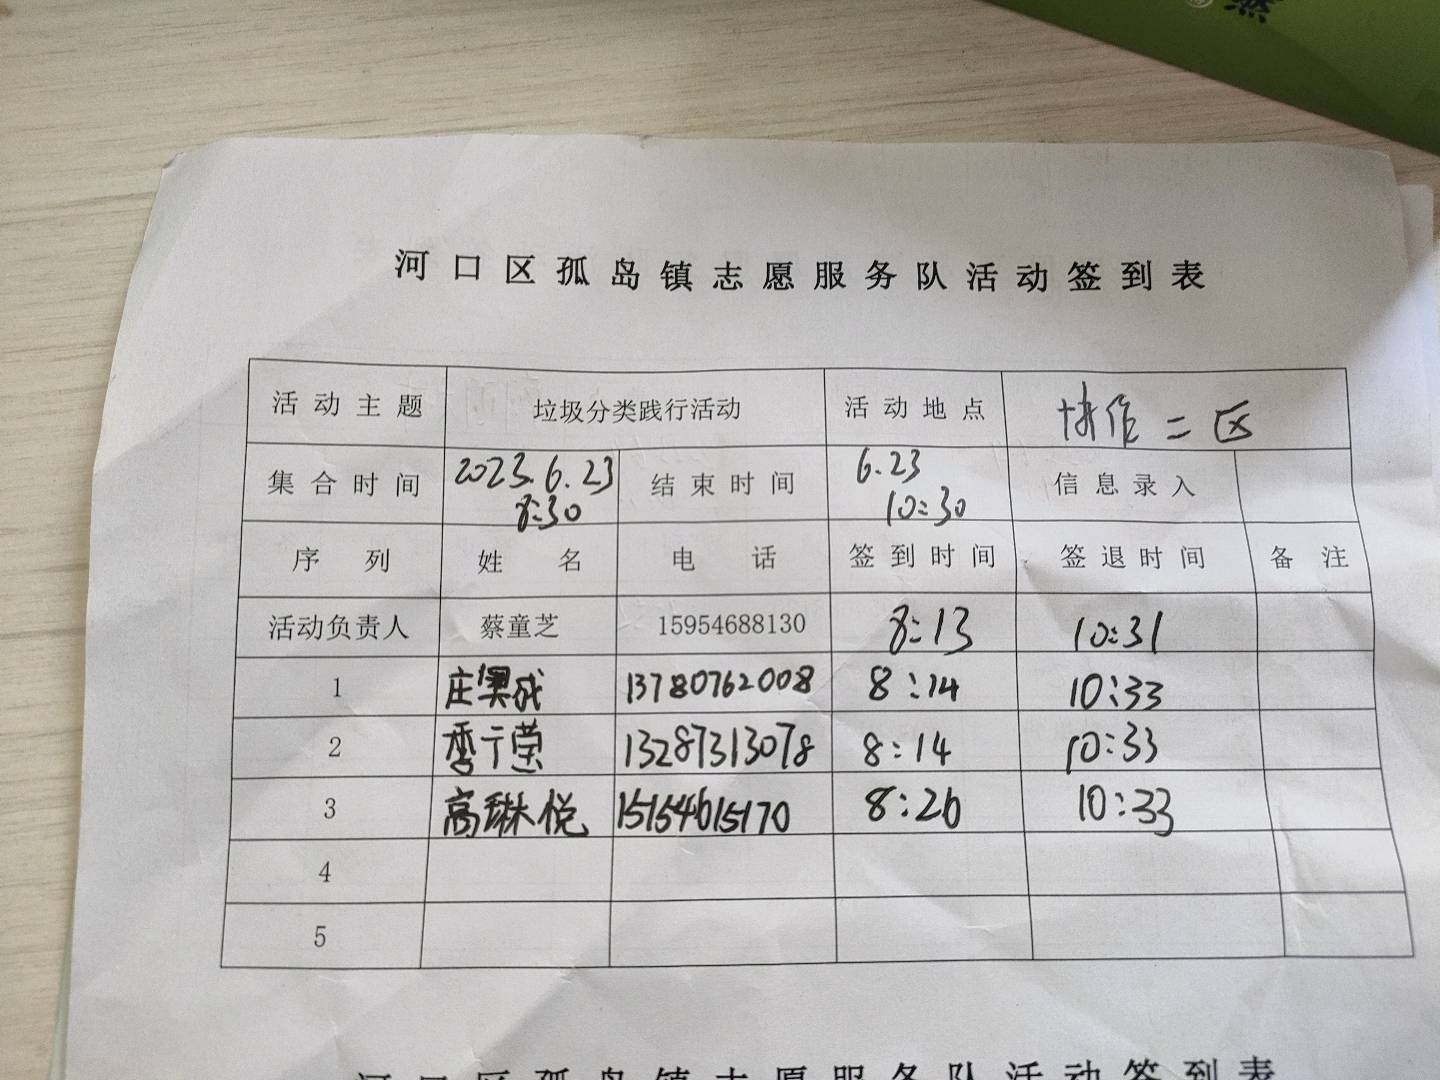 河口区孤岛镇志愿服务队活动签到表
活动主题 垃圾分类践行活动 活动地点 协作二区
集合时间 2023.6.23 8:30 结束时间 6.23 10:30 信息录入
序列 姓名 电话 签到时间 签退时间 备注
活动负责人 蔡童芝 15954688130 8:13 10:31
1 13780762008 8:14 10:33
2 13287313078 8:14 10:33
3 高琳悦 15154615170 8:26 10:33
4
5
河口区孤岛镇志愿服务队活动签到表